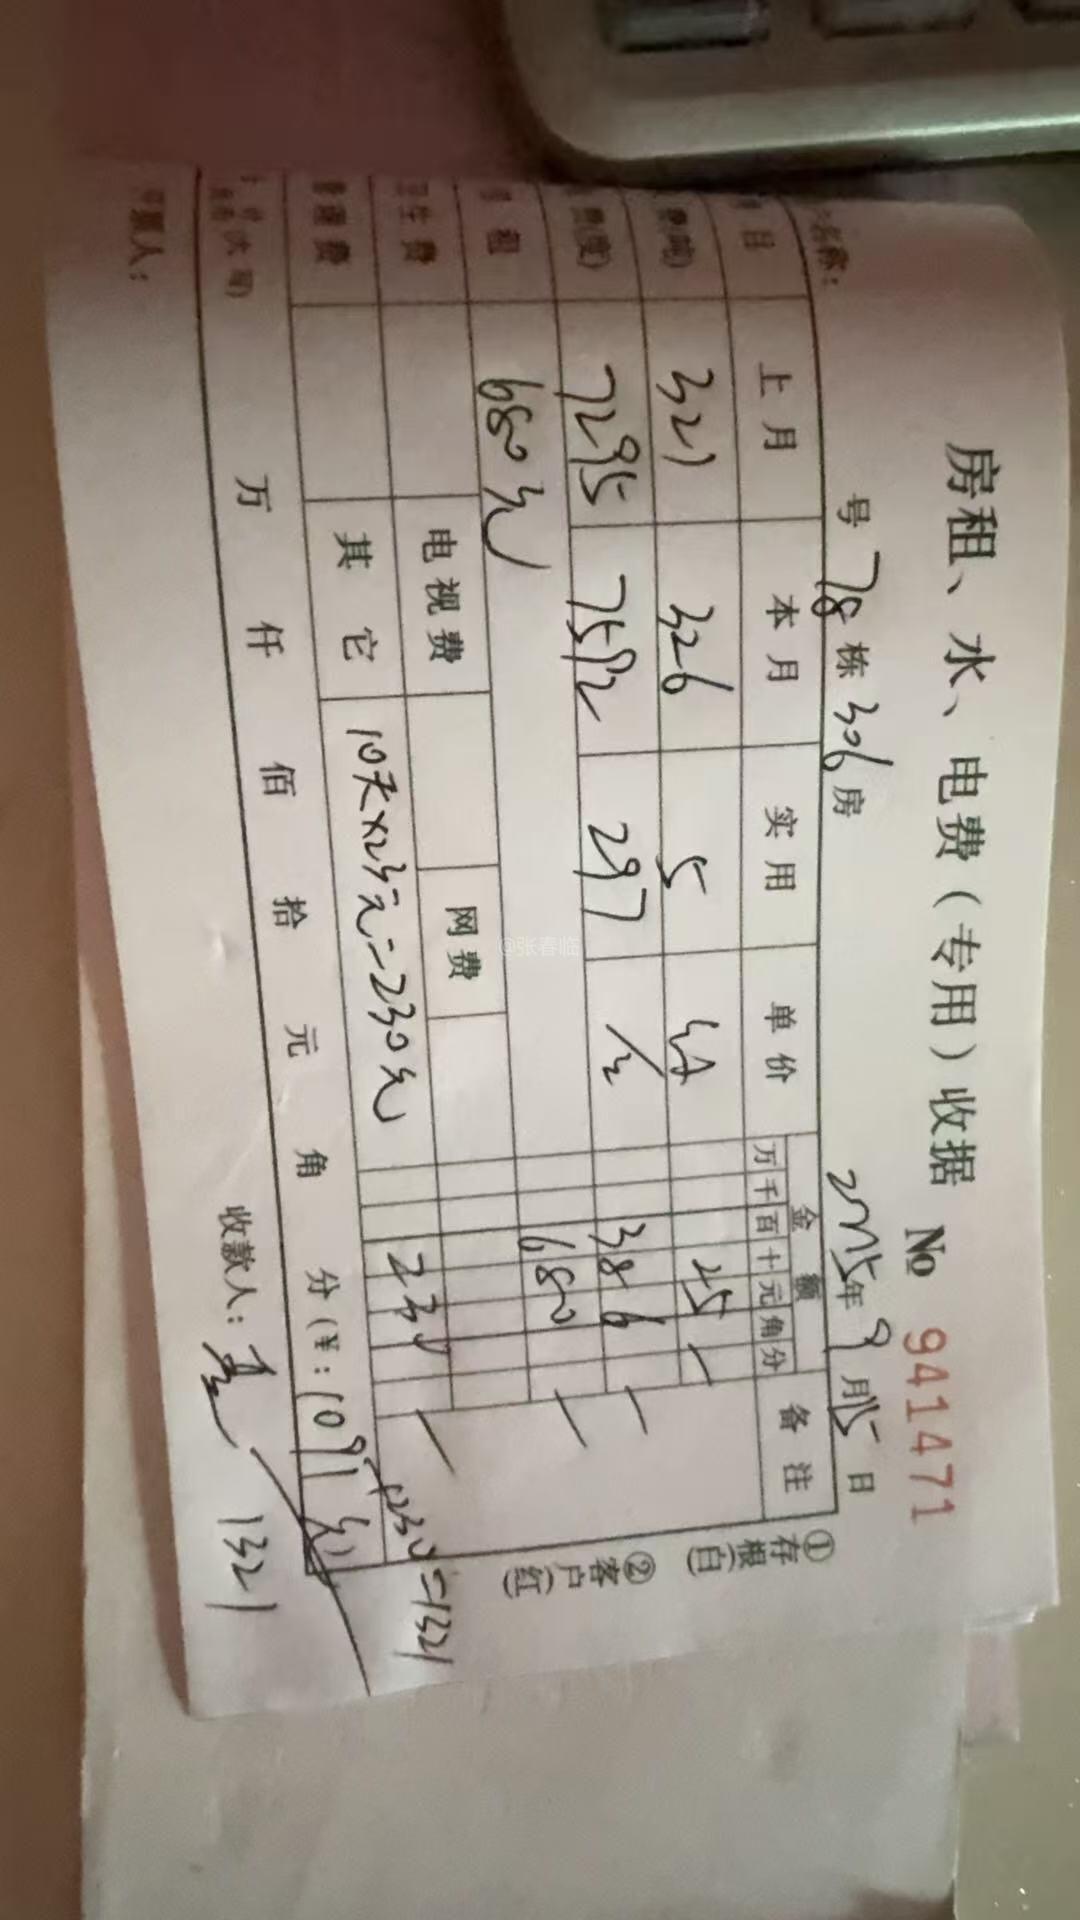 房租、水、电费（专用）收据 № 941471
名称： 号 78 栋 306 房 2025年 9月15日
目 上月 本月 实用 单价 金额 备注
万 千 百 十 元 角 分
费(吨) 321 326 5 25
费(度) 7295 7592 297 386
租 680元 680
卫生费 电视费 网费
管理费 其它 10天×23元=230元 230
+230=1321
万 仟 佰 拾 元 角 分(¥: 1091元)
收款人： 1321
①存根(白) ②客户(红)
@张春临